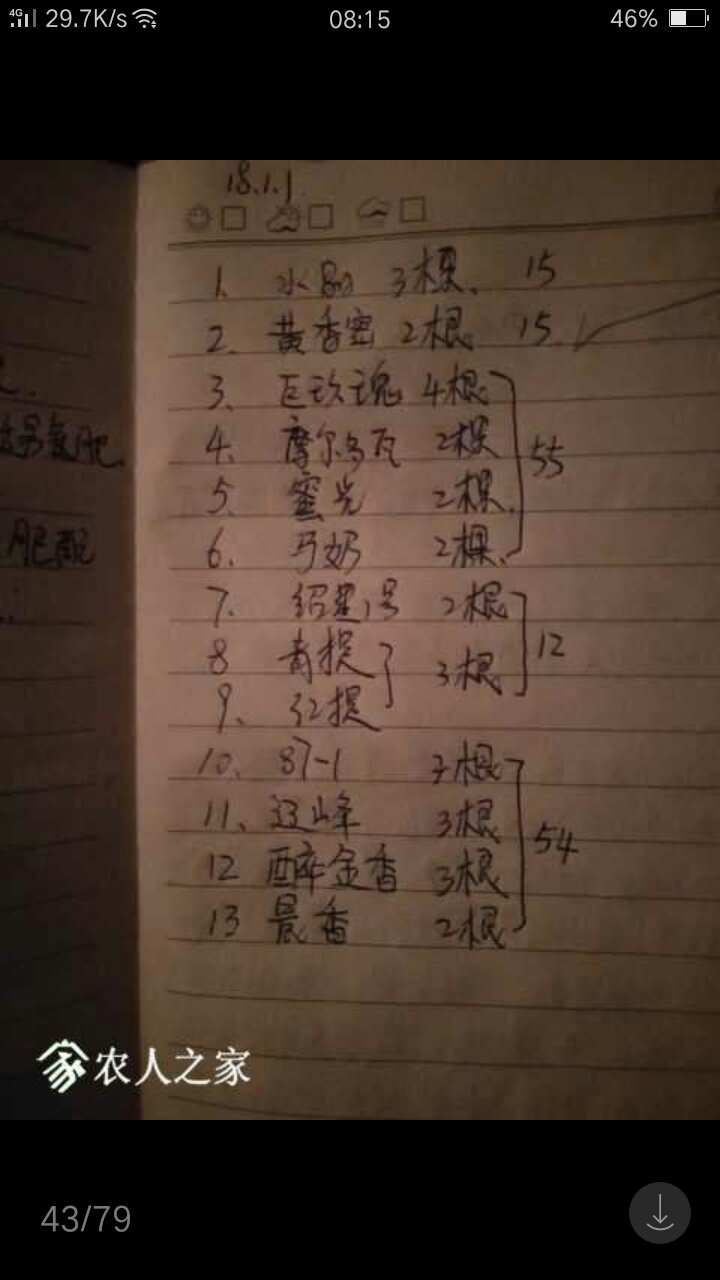 4G 29.7K/s 08:15 46%
18.1.1
1. 水晶 3棵. 15
2. 黄香蜜 2根 15
3. 巨玫瑰 4根
4. 摩尔乌瓦 2棵
5. 蜜光 2棵. 55
6. 马奶 2棵.
7. 绍星1号 2根
8 青提 3根 12
9. 红提
10. 87-1 根
11. 辽峰 3根
12 醉金香 3根 54
13 晨香 2根
肥
肥配
农人之家
43/79